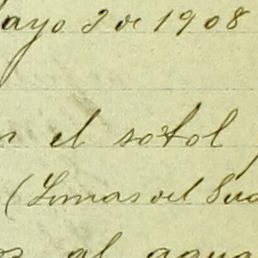 ayo 2 de 1908
n el sotol
(Lomas del Sud
os al agua